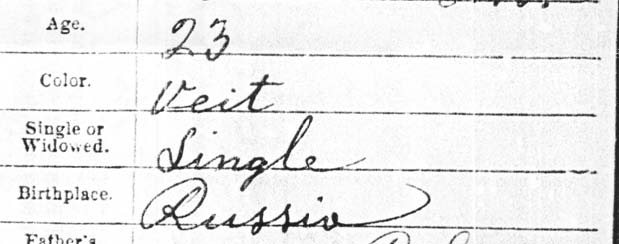 Age. 23
Color. Veit
Single or
Widowed. Single
Birthplace. Russia
Father's